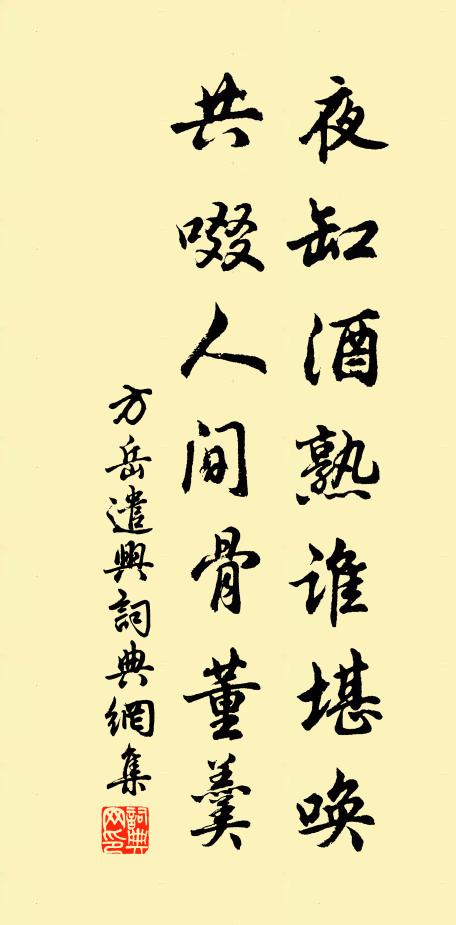 夜缸酒熟谁堪唤
共啜人间骨董羹
方岳遣興詞典網集
詞典网印